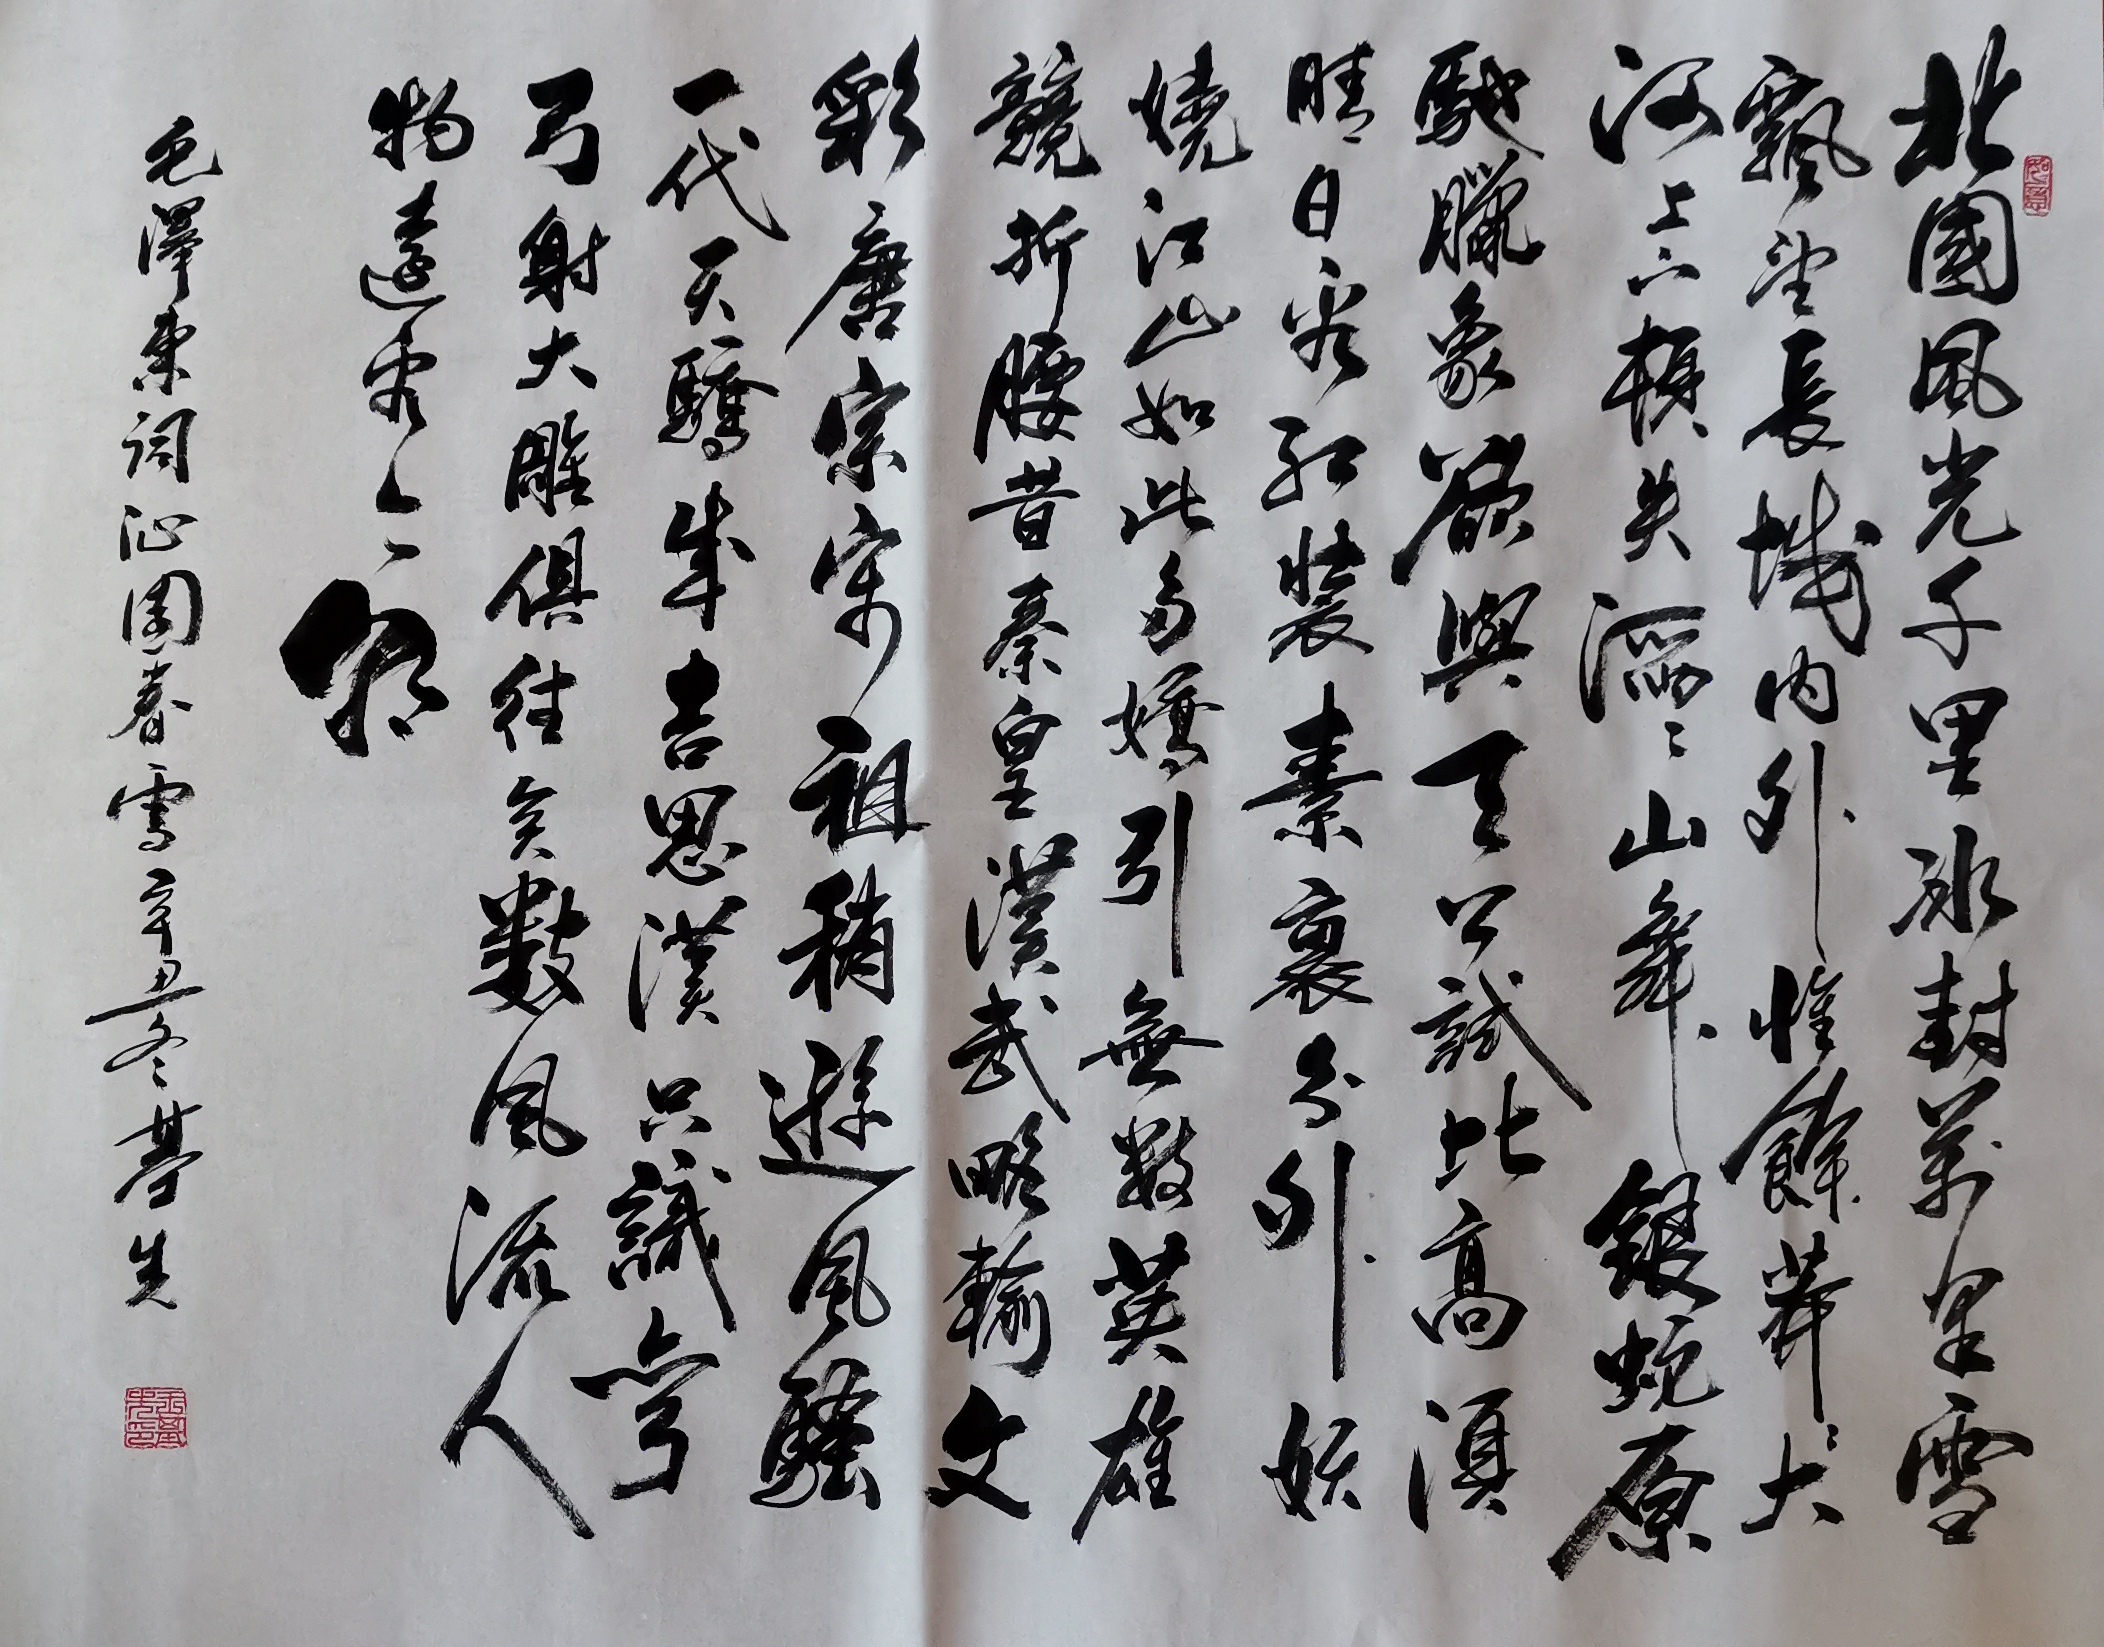 北國風光千里冰封萬里雪
飄望長城内外惟餘莽〻大
河上下頓失滔〻山舞銀蛇原
馳臘象欲與天公試比高須
晴日看紅裝素裹分外妖
嬈江山如此多嬌引無数英雄
競折腰昔秦皇漢武略輸文
彩唐宗宋祖稍遜風騷
一代天驕成吉思漢只識彎
弓射大雕俱往矣數風流人
物還看今
朝
毛澤東詞沁園春雪辛丑冬基先